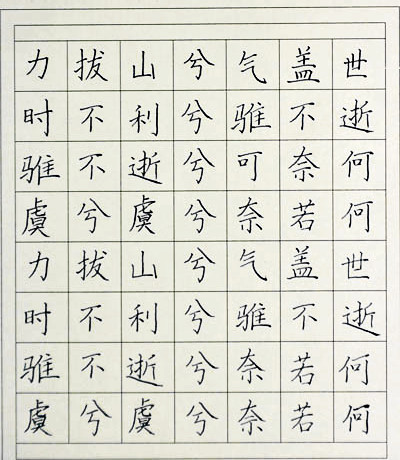 力拔山兮气盖世
时不利兮骓不逝
骓不逝兮可奈何
虞兮虞兮奈若何
力拔山兮气盖世
时不利兮骓不逝
骓不逝兮奈若何
虞兮虞兮奈若何